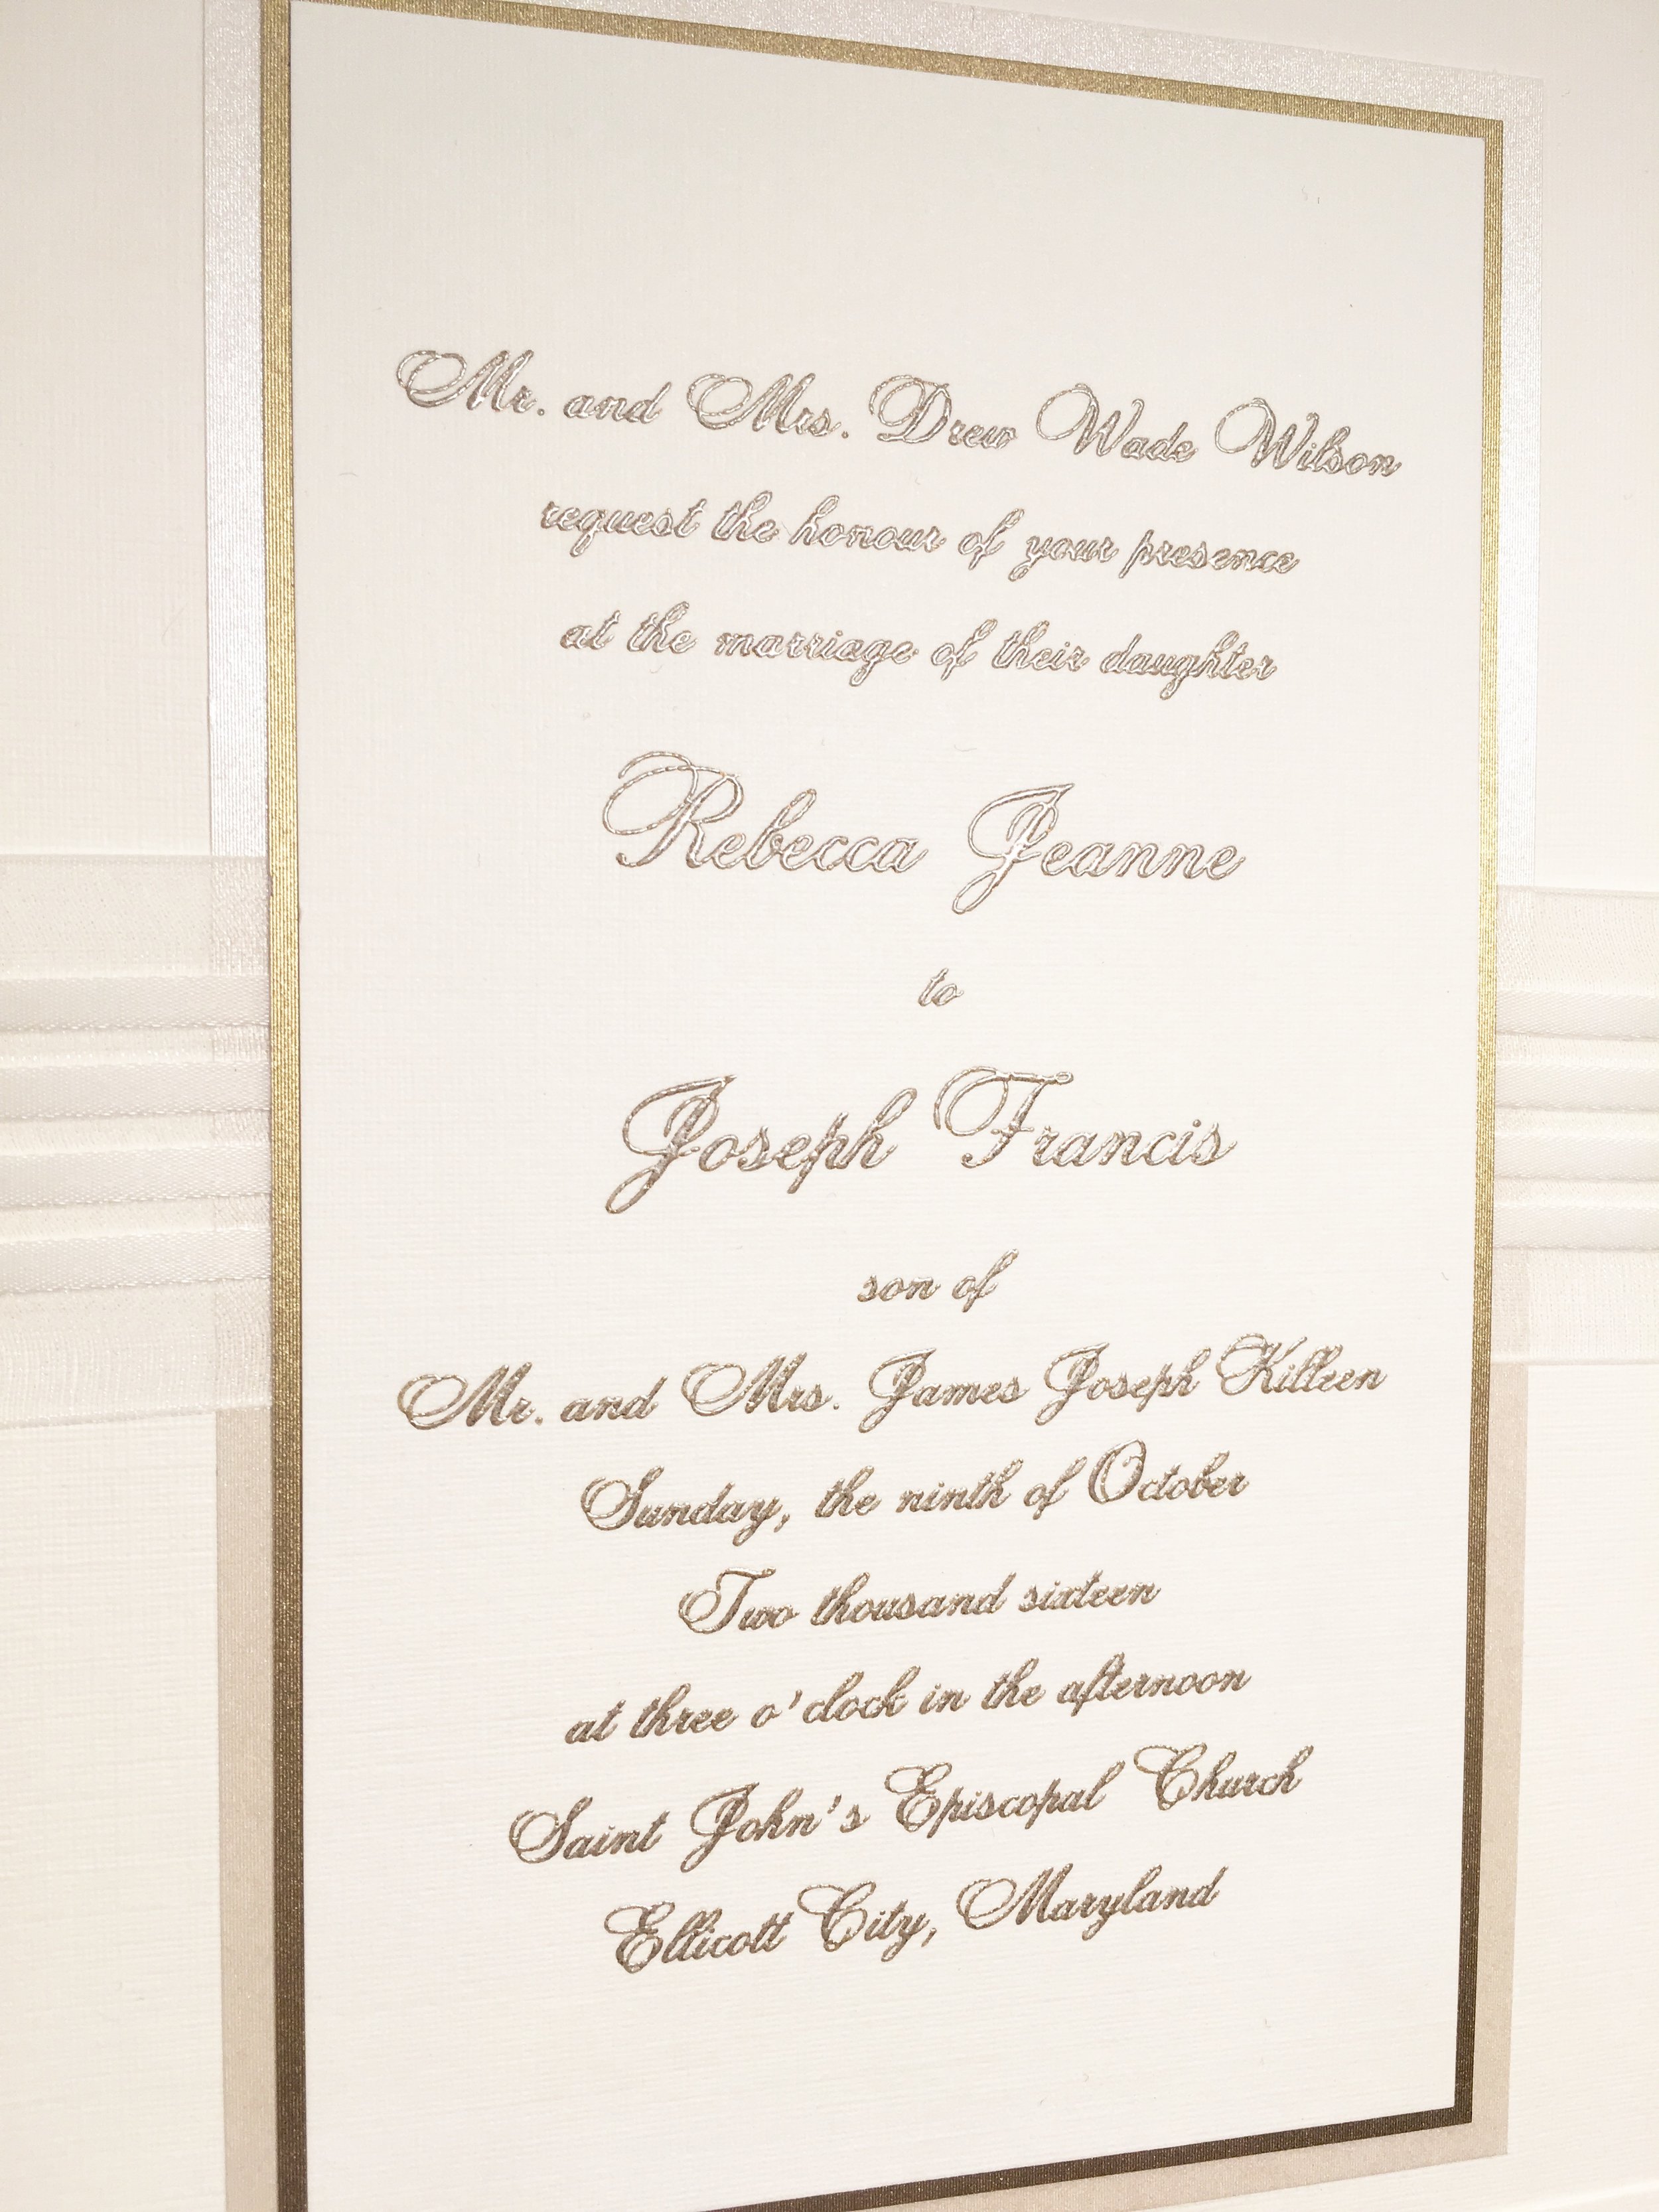 Mr. and Mrs. Drew Wade Wilson
request the honour of your presence
at the marriage of their daughter
Rebecca Jeanne
to
Joseph Francis
son of
Mr. and Mrs. James Joseph Killeen
Sunday, the ninth of October
Two thousand sixteen
at three o'clock in the afternoon
Saint John's Episcopal Church
Ellicott City, Maryland